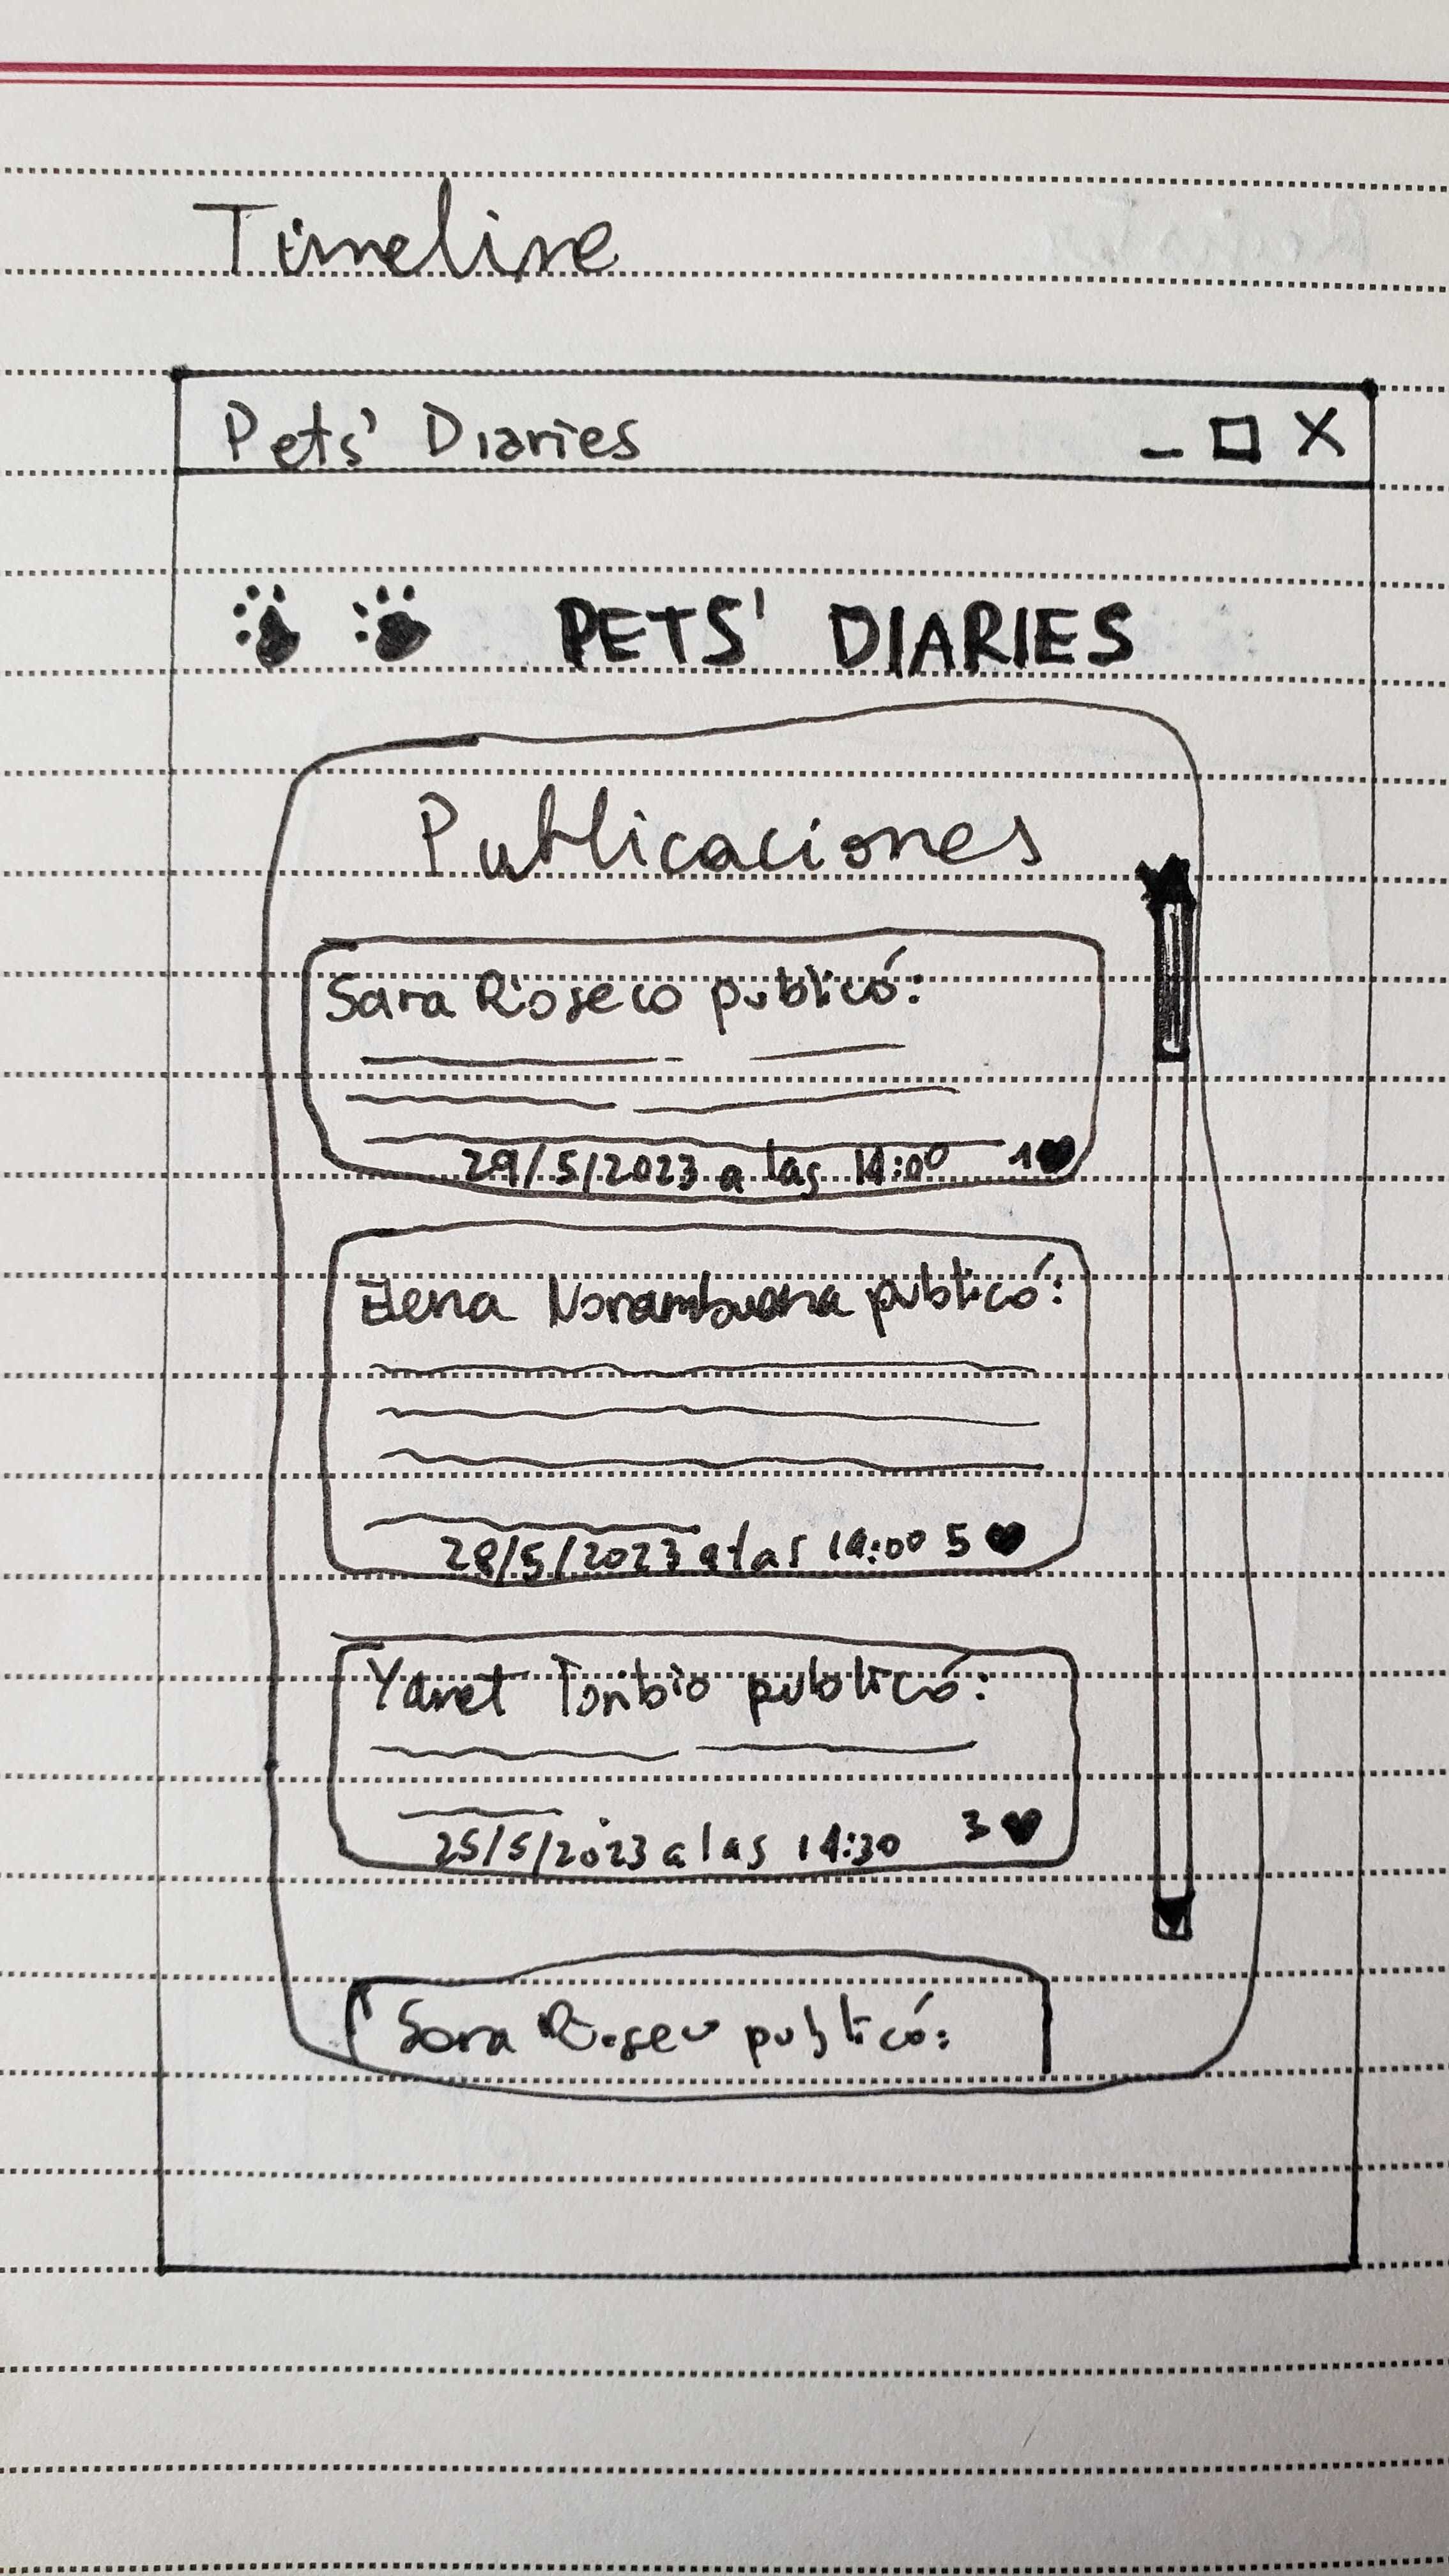 Timeline
Pets' Diaries
PETS' DIARIES
Publicaciones
Sara Rioseco publicó:
29/5/2023 a las 14:00 1
Elena Norambuena publicó:
28/5/2023 a las 14:00 5
Yanet Toribio publicó:
25/5/2023 a las 14:30 3
Sara Rioseco publicó: